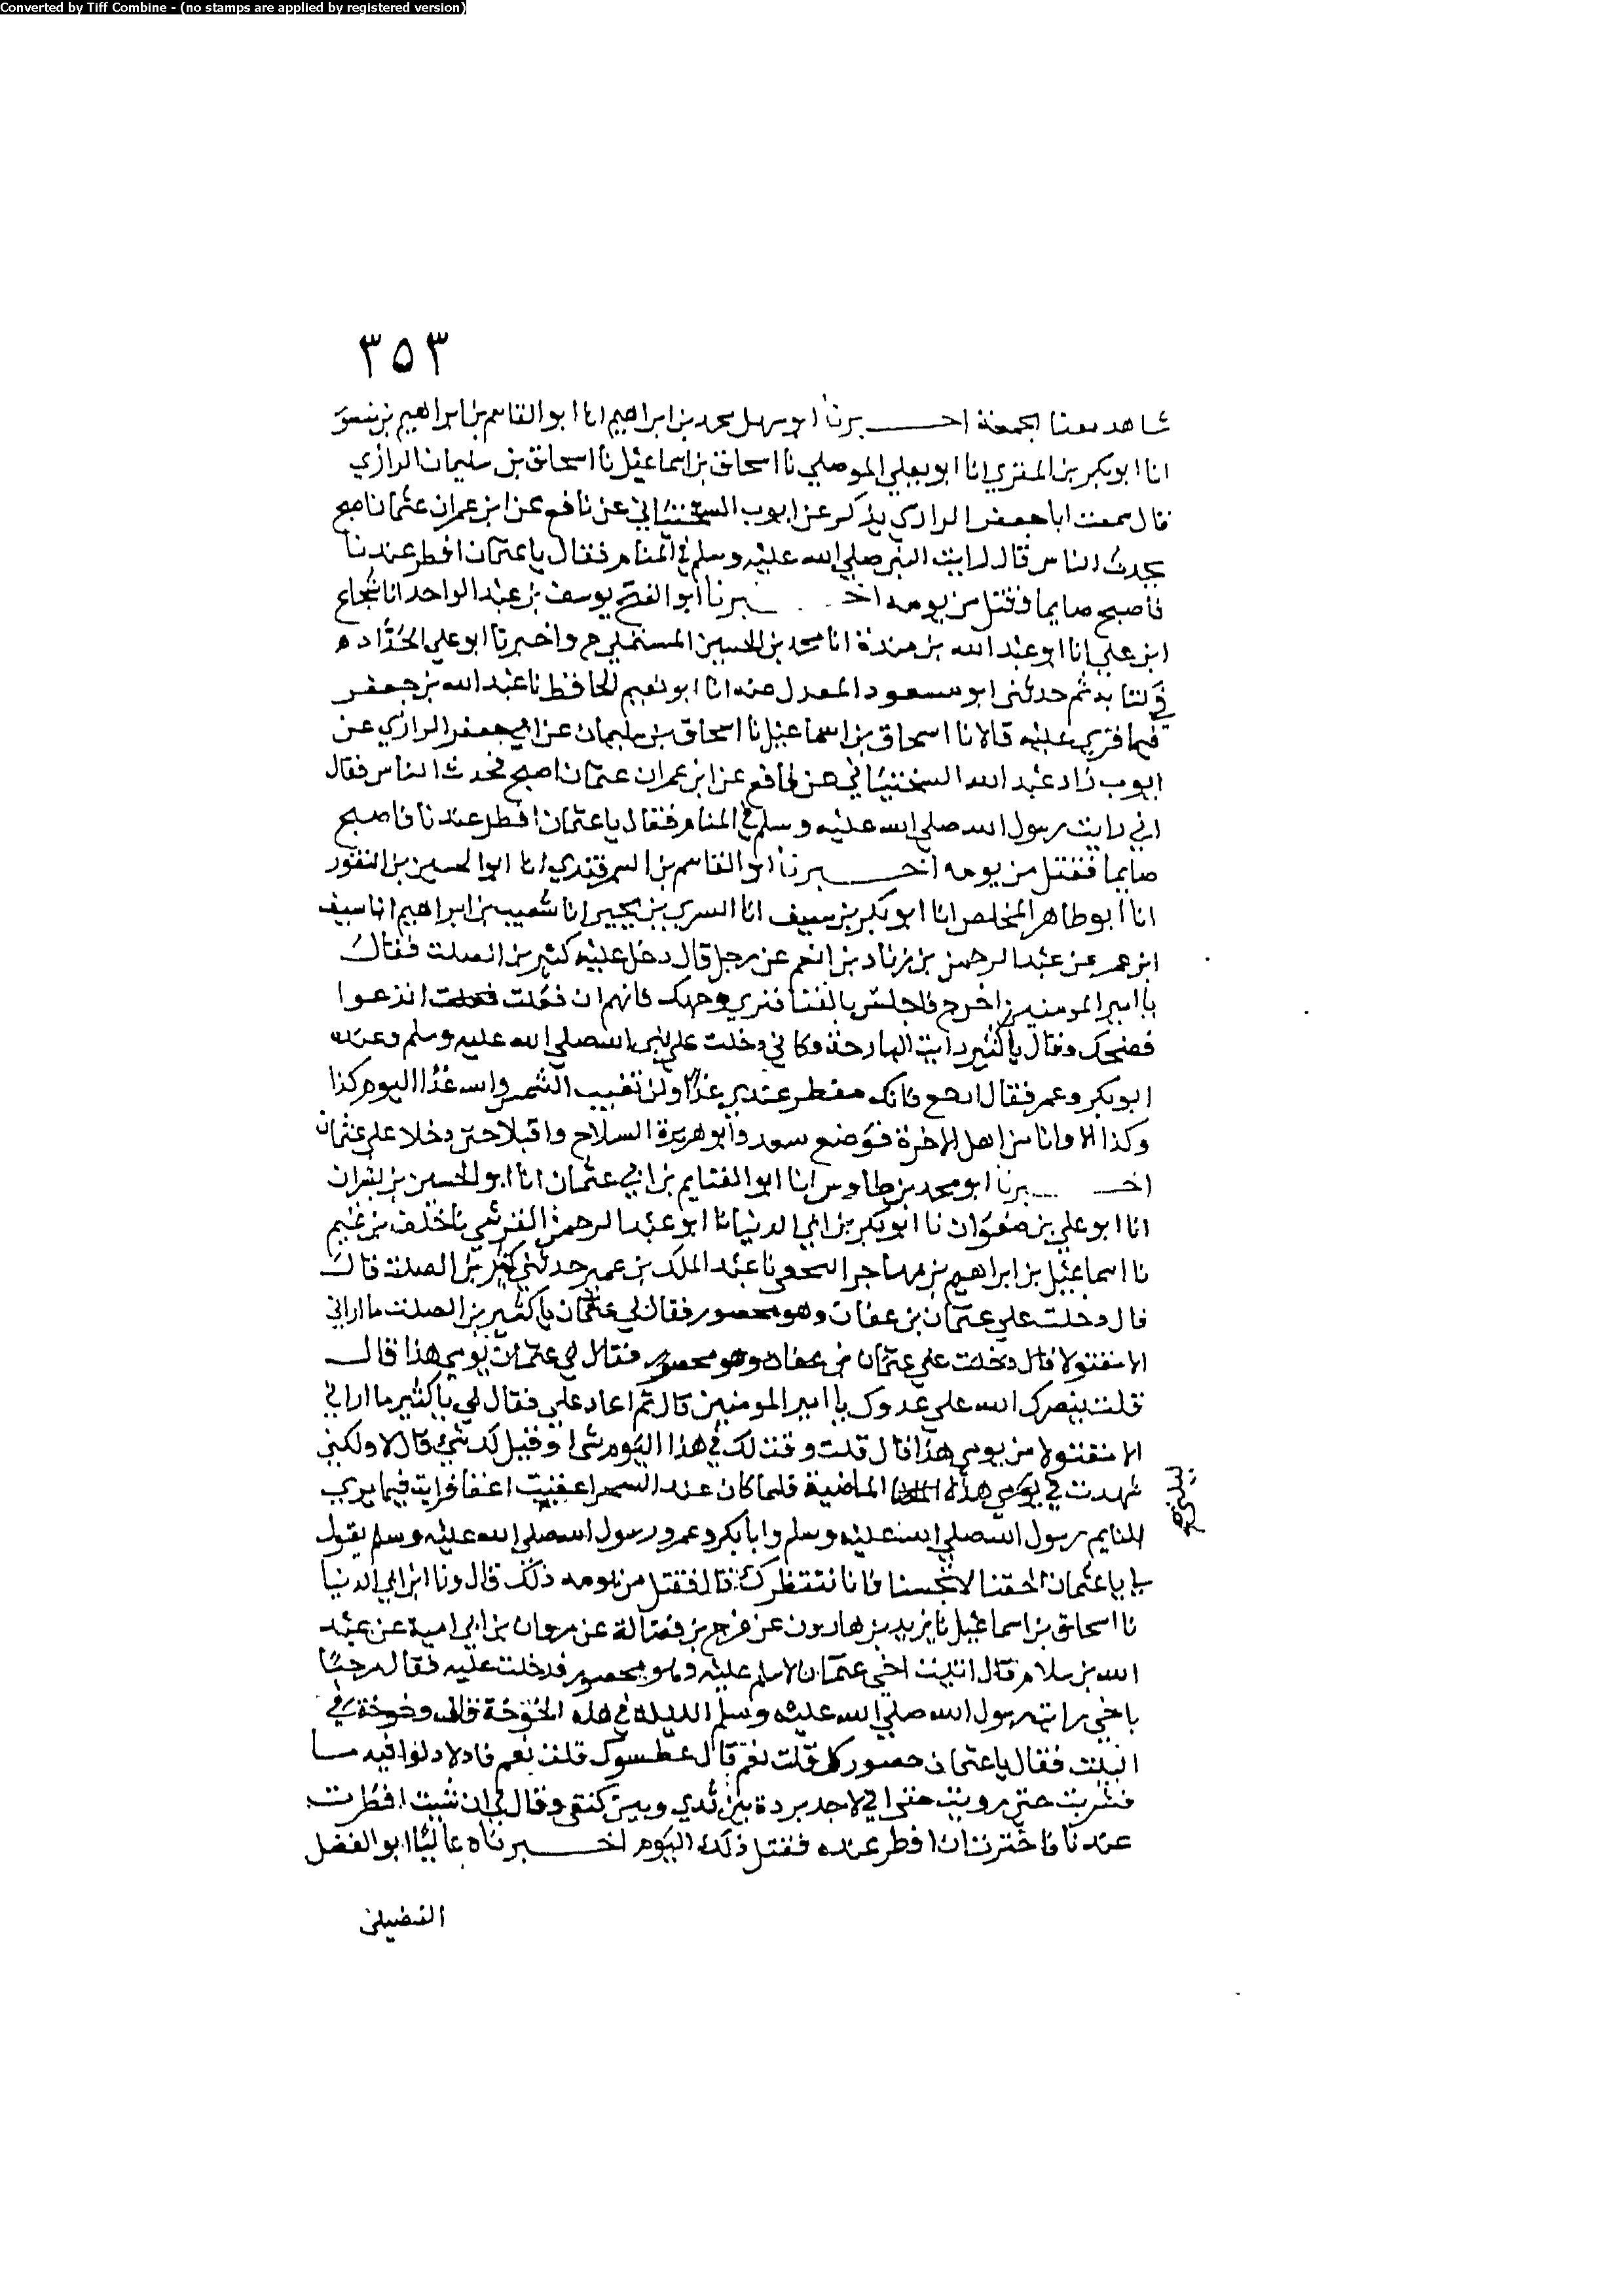 Converted by Tiff Combine - (no stamps are applied by registered version)
٣٥٣
شاهد معنا الجمعة اخـــبرنا ابو سهل محمد بن ابراهيم انا ابو القاسم بن ابراهيم بن منصور
انا ابو بكر بن المقري انا ابو يعلي الموصلي نا اسحاق بن اسماعيل نا اسحاق بن سليمان الرازي
قال سمعت ابا جعفر الرازي يذكر عن ايوب السختياني عن نافع عن ابن عمر ان عثمان اصبح
يحدث الناس قال رايت النبي صلي الله عليه وسلم في المنام فقال يا عثمان افطر عندنا
فاصبح صايما وقتل من يومه اخـــبرنا ابو الفتح يوسف بن عبد الواحد انا شجاع
ابن علي انا ابو عبد الله بن مندة انا محمد بن الحسين المستملي ح واخبرنا ابو علي الحداد
في كتابه ثم حدثني ابو مسعود المعدل عنه انا ابو نعيم الحافظ نا عبد الله بن جعفر
فيما قري عليه قالا نا اسحاق بن اسماعيل نا اسحاق بن سليمان عن ابي جعفر الرازي عن
ايوب زاد عبد الله السختياني عن نافع عن ابن عمر ان عثمان اصبح فحدث الناس فقال
اني رايت رسول الله صلي الله عليه وسلم في المنام فقال يا عثمان افطر عندنا فاصبح
صايما فقتل من يومه اخـــبرنا ابو القاسم بن السمرقندي انا ابو الحسين بن النقور
انا ابو طاهر المخلص انا ابو بكر بن سيف انا السري بن يحيي انا شعيب بن ابراهيم انا سيف
ابن عمر عن عبد الرحمن بن زياد بن انعم عن رجل قال دخل عليه كثير بن الصلت فقال
يا امير المومنين اخرج فاجلس بالفنا فنري وجهك فانهم ان فعلت انذعوا
فضحك وقال يا كثير رايت البارحة وكاني دخلت علي نبي الله صلي الله عليه وسلم وعنده
ابو بكر وعمر فقال ارجع فانك مفطر عندي غدا ولن تغيب الشمس والله غدا اليوم كذا
وكذا الا وانا من اهل الاخرة فوضع سعد وابو هريرة السلاح واقبلا حتي دخلا علي عثمان
اخـــبرنا ابو محمد بن طاوس انا ابو الغنايم بن ابي عثمان انا ابو الحسين بن بشران
انا ابو علي بن صفوان نا ابو بكر بن ابي الدنيا نا ابو عبد الرحمن القرشي نا خلف بن تميم
نا اسماعيل بن ابراهيم بن مهاجر البجلي نا عبد الملك بن عمير حدثني كثير بن الصلت قال
قال دخلت علي عثمان بن عفان وهو محصور فقال لي عثمان يا كثير بن الصلت ما اراني
الا مقتولا قال دخلت علي عثمان بن عفان وهو محصور فقال لي عثمان يومي هذا قال
قلت ينصرك الله علي عدوك يا امير المومنين قال ثم اعاد علي فقال لي يا كثير ما اراني
الا مقتولا من يومي هذا قال قلت وقت لك في هذا اليوم شي او قيل لك شي قال لا ولكني
شهدت في هذه الماضية فلما كان عند السحر اغفيت اغفا فرايت فيما يري
ليلتي صح
النايم رسول الله صلي الله عليه وسلم وابا بكر وعمر ورسول الله صلي الله عليه وسلم يقول
يا عثمان الحقنا لا تحبسنا فانا ننتظرك قال فقتل من يومه ذلك قال ونا ابن ابي الدنيا
نا اسحاق بن اسماعيل نا يزيد بن هارون عن فرج بن فضالة عن مروان بن ابي امية عن عبد
الله بن سلام قال اتيت اخي عثمان لاسلم عليه وهو محصور فدخلت عليه فقال مرحبا
باخي رايت رسول الله صلي الله عليه وسلم الليلة في هذه الخوخة قال وخوخة في
البيت فقال يا عثمان حصروك قلت نعم قال عطشوك قلت نعم فادلا دلوا فيه ما
فشربت حتي رويت حتي اني لاجد بردة بين ثديي وبين كتفي وقال لي ان شيت افطرت
عندنا فاخترت ان افطر عنده فقتل ذلك اليوم اخـــبرناه عاليا ابو الفضل
الفضيلي